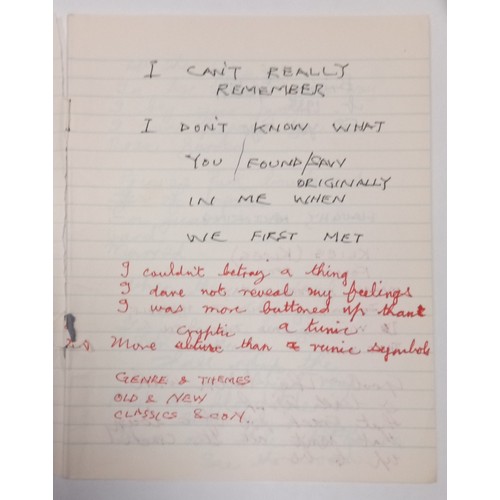 I CAN'T REALLY
REMEMBER
I DON'T KNOW WHAT
YOU / FOUND/SAW
ORIGINALLY
IN ME WHEN
WE FIRST MET
I couldn't betray a thing
I dare not reveal my feelings
I was more buttoned up than
cryptic a tunic
More than runic symbols
GENRE & THEMES
OLD & NEW
CLASSICS & CON.